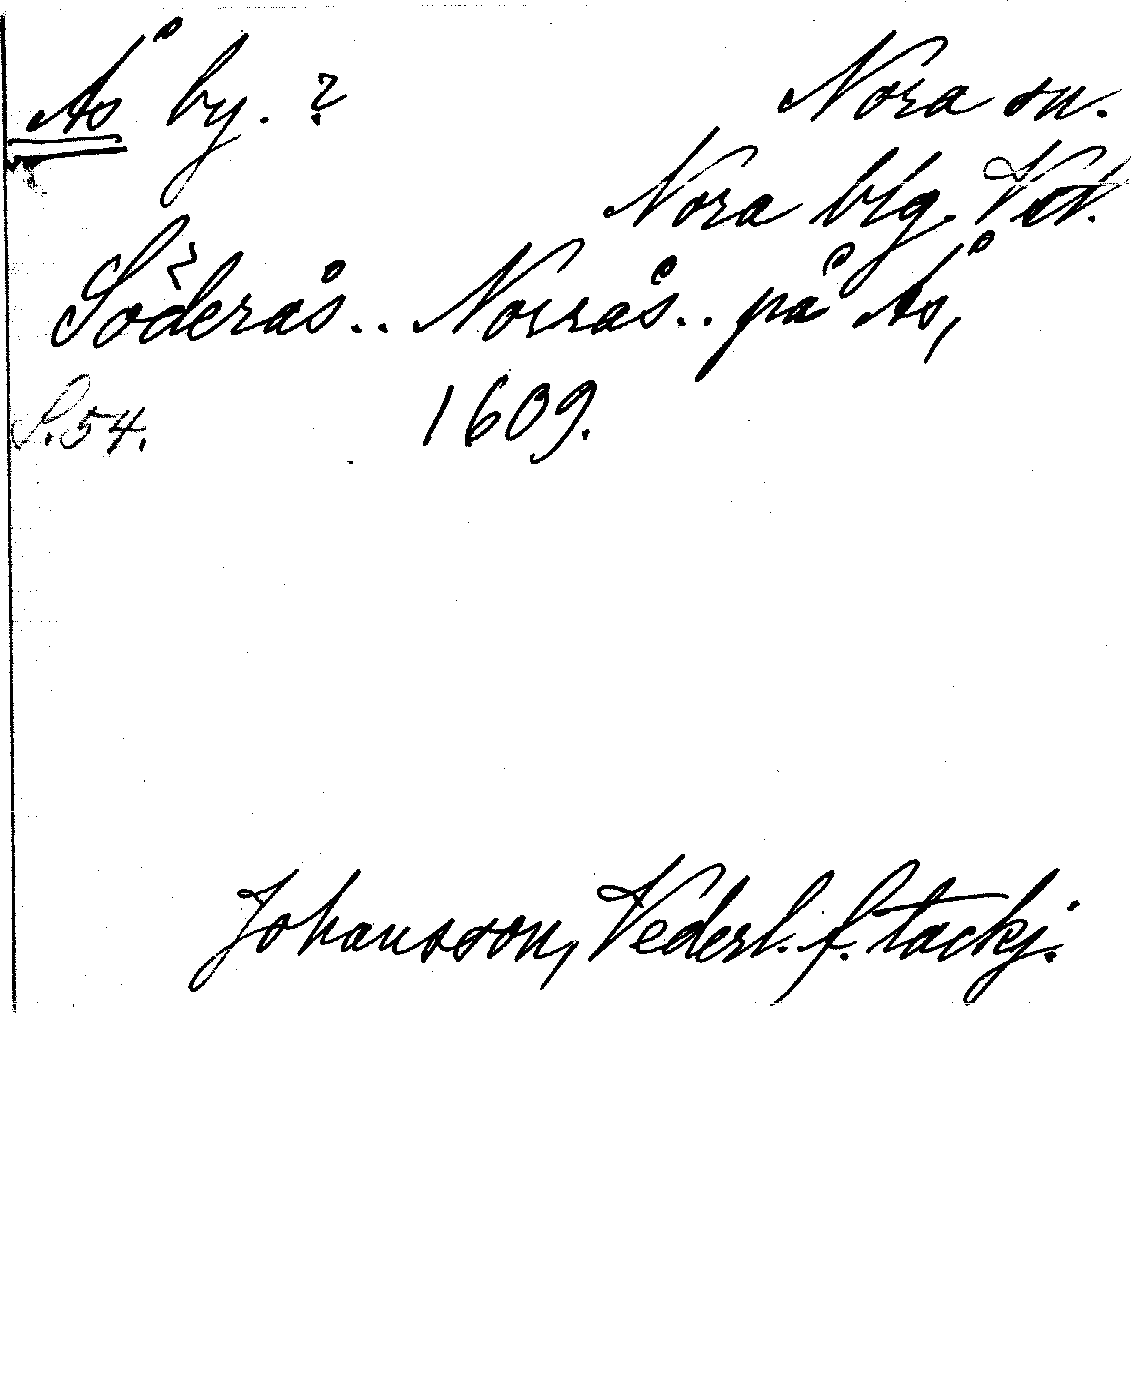 Ås by. ? Nora sn.
Nora blg. Vstl.
Söderås.. Norrås.. på Ås,
S. 54. 1609.
Johansson, Vederl. f. tackj.